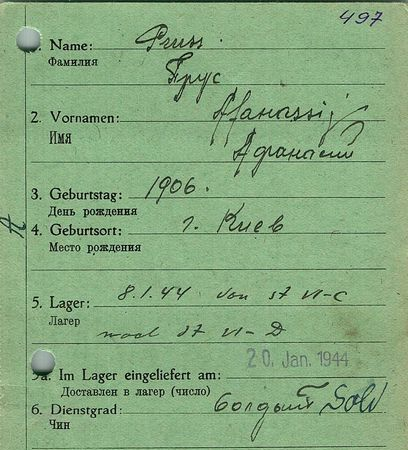 497
1. Name: Pruss
Фамилия Прус
2. Vornamen: Afanassij
Имя Афанасий
3. Geburtstag: 1906.
День рождения
4. Geburtsort: г. Киев
Место рождения
5. Lager: 8.1.44 von st VI-C
Лагер st VI-D
20. Jan. 1944
5a. Im Lager eingeliefert am:
Доставлен в лагер (число)
6. Dienstgrad: Sold
Чин